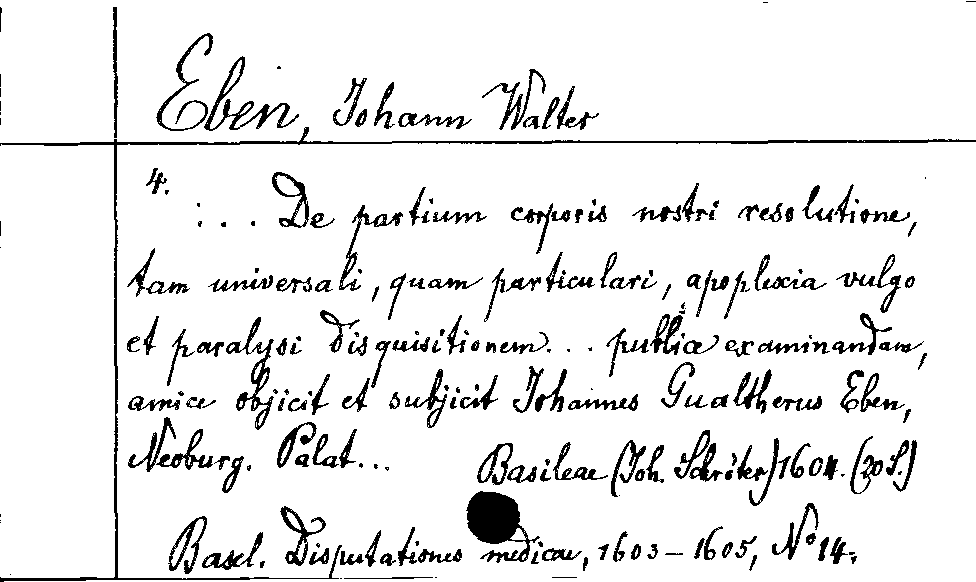 Eben, Johann Walter
4.
:... De partium corporis nostri resolutione,
tam universali, quam particulari, apoplexia vulgo
et paralysi disquisitionem... publicae examinandam,
amice objicit et subjicit Johannes Gualtherus Eben,
Neoburg. Palat...
Basileae (Joh. Schröter) 1604. (20 S.)
Basel. Disputationes medicae, 1603-1605, No 14.